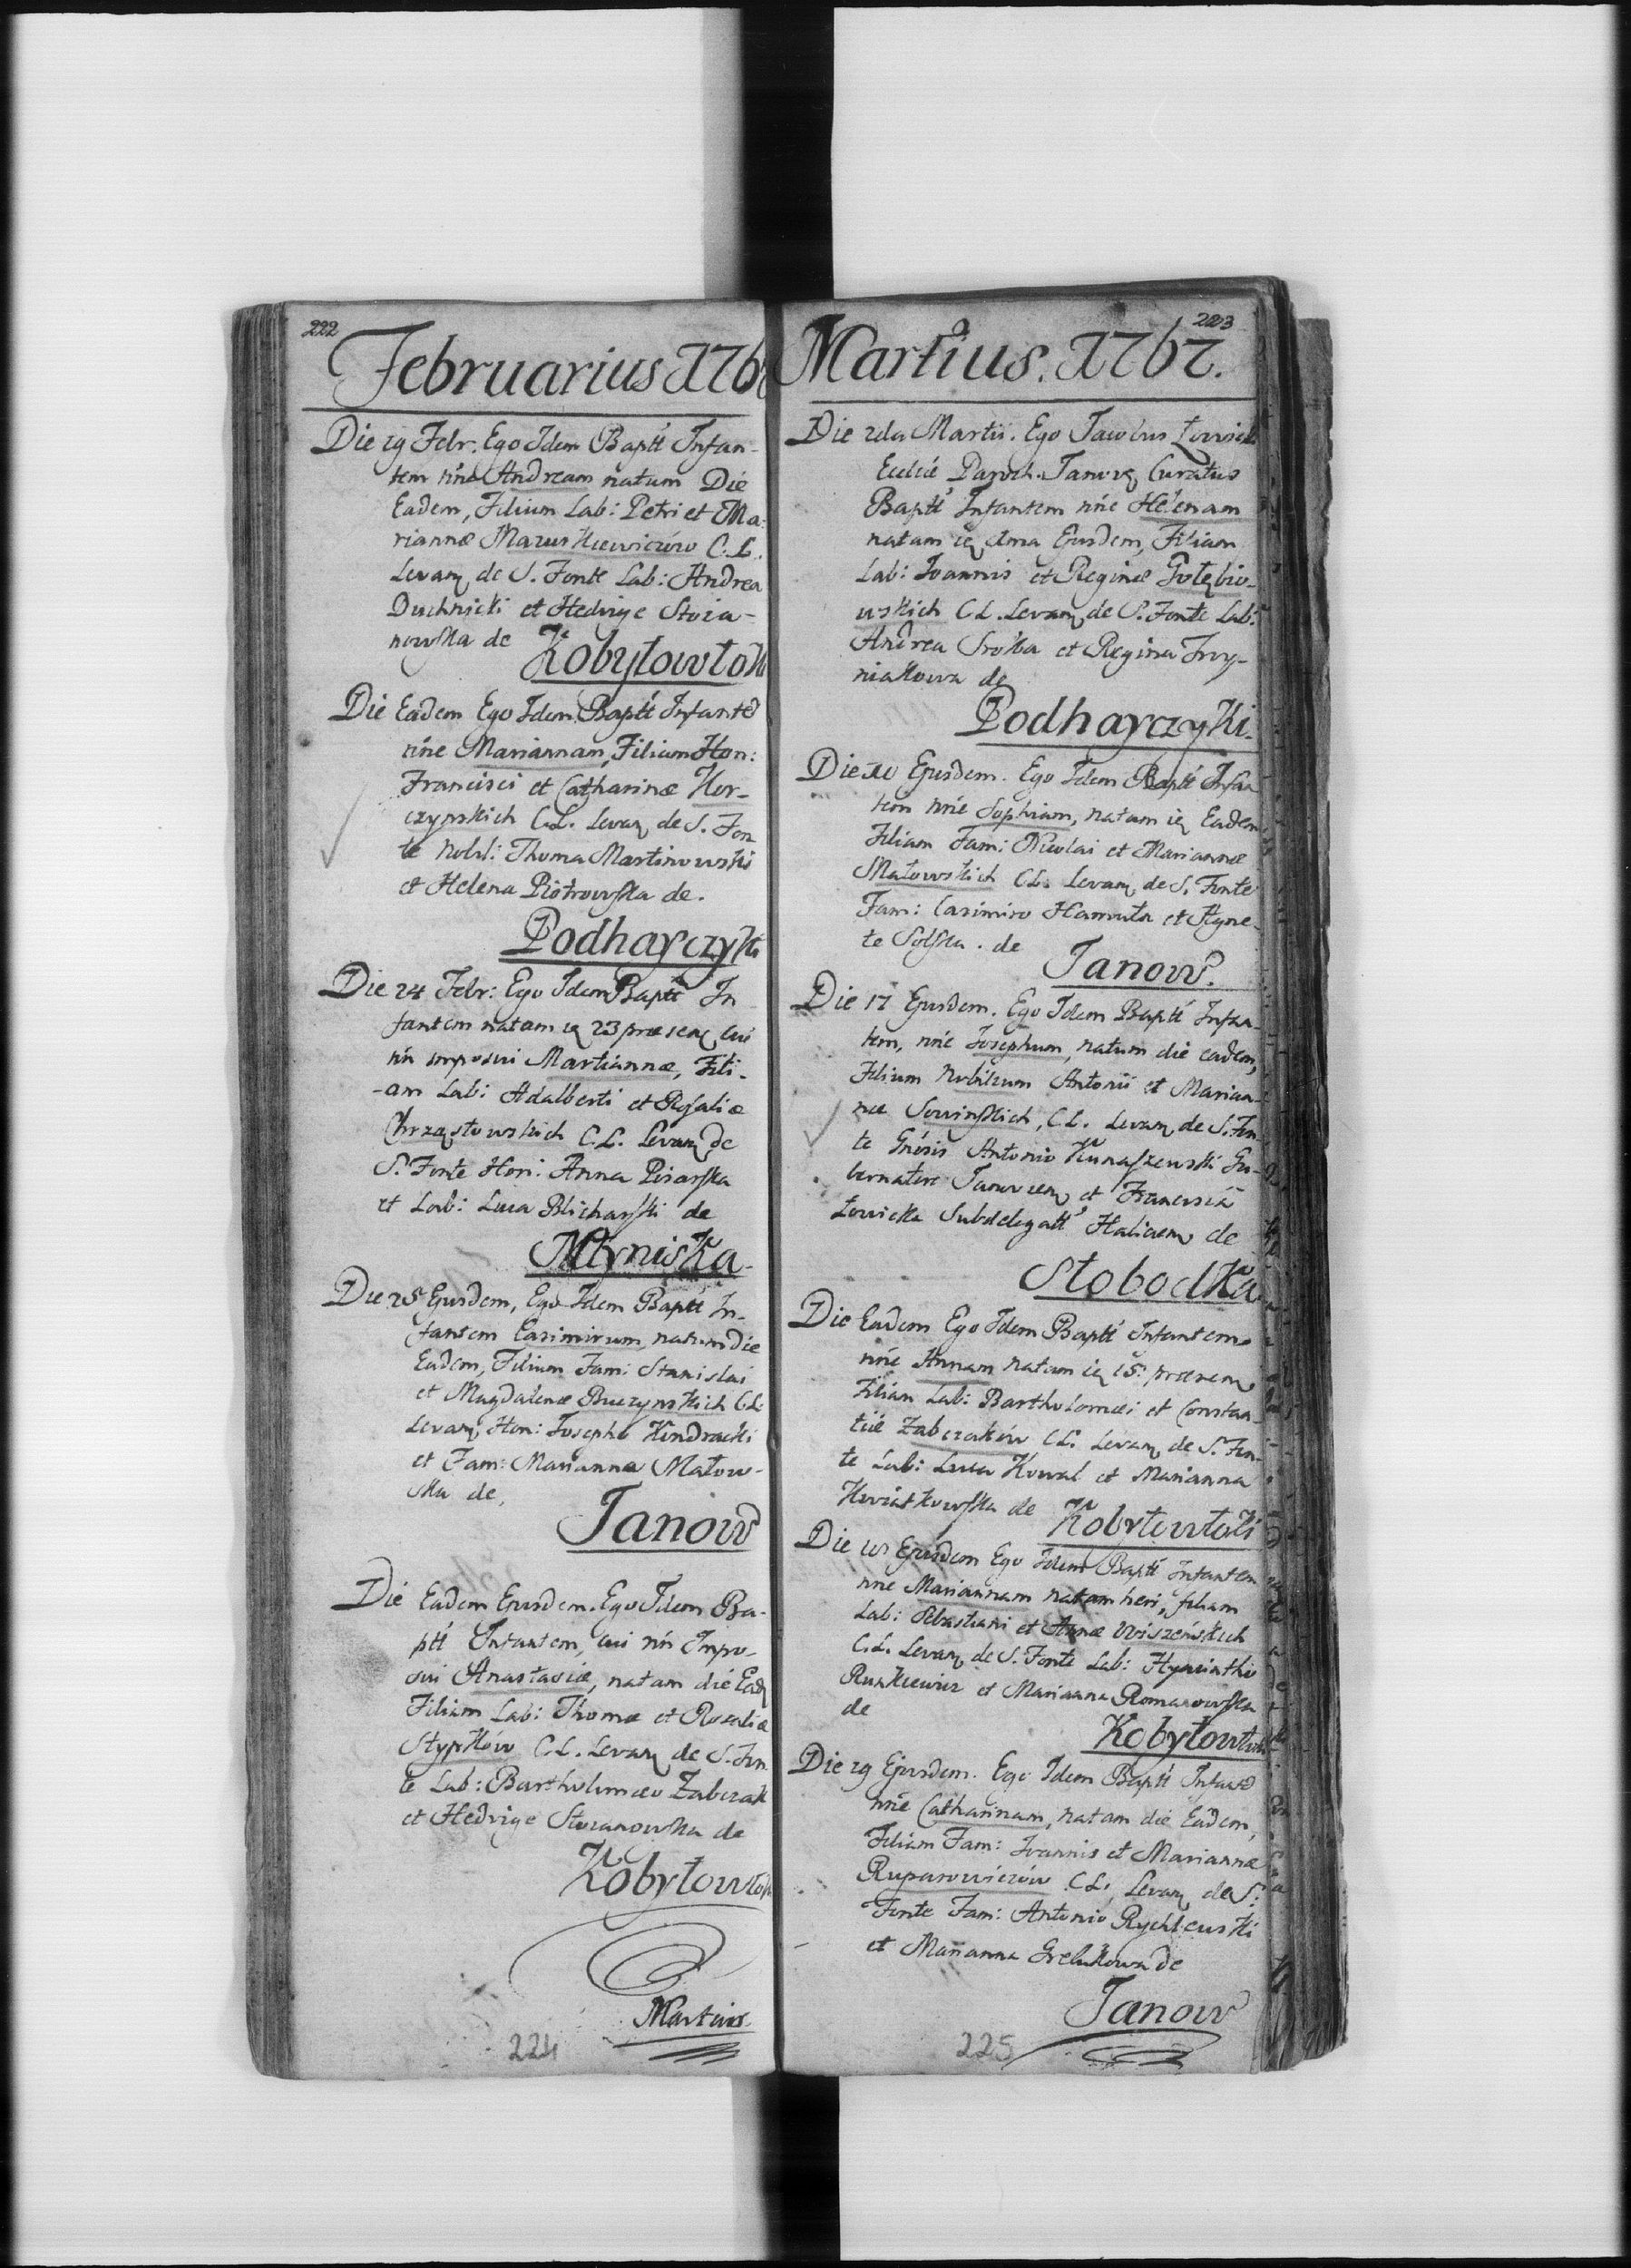 222
Februarius 176
Die 19 Febr: Ego Idem Baptt Infan-
tem nne Andream natum Die
Eadem, Filium Lab: Petri et Ma-
riannæ Maruskiewiczow C. L.
Levan de S. Fonte Lab: Andrea
Duchnicki et Hedvige Stoia-
nowska de Kobyłowłok
Die Eadem Ego Idem Baptt Infante
nne Mariannam, Filiam Hon:
Francisci et Catharinæ Kor-
czynskich C.L. Levan de S. Fon
te Nobil: Thoma Martinowski
et Helena Piotrowska de.
Podhayczyki
Die 24 Febr: Ego Idem Baptt In
fantem natam 23 præsen cui
nn imposui Martiannæ, Fili-
-am Lab: Adalberti et Rosaliæ
Chrząstowskich C.L. Levan de
S. Fonte Hon: Anna Pisarska
et Lab: Luca Blicharski de
Młyniska.
Die 25 Ejusdem, Ego Idem Baptt In-
fantem Casimirum, natum die
Eadem, Filium Fam: Stanislai
et Magdalenæ Buczynskich C.L.
Levan Hon: Josepho Kindracki
et Fam: Marianna Małow-
ska de,
Janow
Die Eadem Ejusdem. Ego Idem Ba-
ptt Infantem, cui nn Impo-
sui Anastasiæ, natam die Ead
Filiam Lab: Thomæ et Rosaliæ
Stypków C.L. Levan de S. Fon
te Lab: Bartholomæo Zabczak
et Hedvige Stoianowska de
Kobyłowłok
Martius.
224
223
Martius. 1767.
Die 2da Martii. Ego Jacobus Łowick
Eccliæ Paroch. Janov Curatus
Baptt Infantem nne Helenam
natam Ima Ejusdem, Filiam
Lab: Joannis et Reginæ Gołębio-
wskich C.L. Levan de S. Fonte Lab:
Andrea Sroka et Regina Fry-
niakowa de
Podhayczyki.
Die 10 Ejusdem. Ego Idem Baptt Infan
tem nne Sophiam, natam Eadem
Filiam Fam: Nicolai et Mariannæ
Małowskich C.L. Levan de S. Fonte
Fam: Casimiro Hamuła et Agne-
te Solska. de Janow.
Die 17 Ejusdem. Ego Idem Baptt Infan-
tem, nne Josephum, natum die eadem,
Filium Nobilium Antonii et Marian-
næ Sowinskich, C.L. Levan de S. Fon-
te Gnosis Antonio Kunaszewski Gu-
bernatore Janovien et Francisca
Łowicka Subdelegatt Halicien de
Słobodka
Die Eadem Ego Idem Baptt Infantem
nne Annam natam 15 præsen
Filiam Lab: Bartholomæi et Constan-
tiæ Zabczaków C.L. Levan de S. Fon-
te Lab: Luca Kowal et Marianna
Kwiatkowska de Kobyłowłoki
Die Ejusdem Ego Idem Baptt Infantem
nne Mariannam natam heri, filiam
Lab: Sebastiani et Annæ Wiszeńskich
C.L. Levan de S. Fonte Lab: Hyacintho
Ruszkiewicz et Marianna Romanowska
de
Kobyłowłok
Die 29 Ejusdem. Ego Idem Baptt Infante
nne Catharinam, natam die Eadem,
Filiam Fam: Joannis et Mariannæ
Ruparowiczów C.L. Levan de S.
Fonte Fam: Antonio Rychlewski
et Marianna Grelukowa de
Janow
225